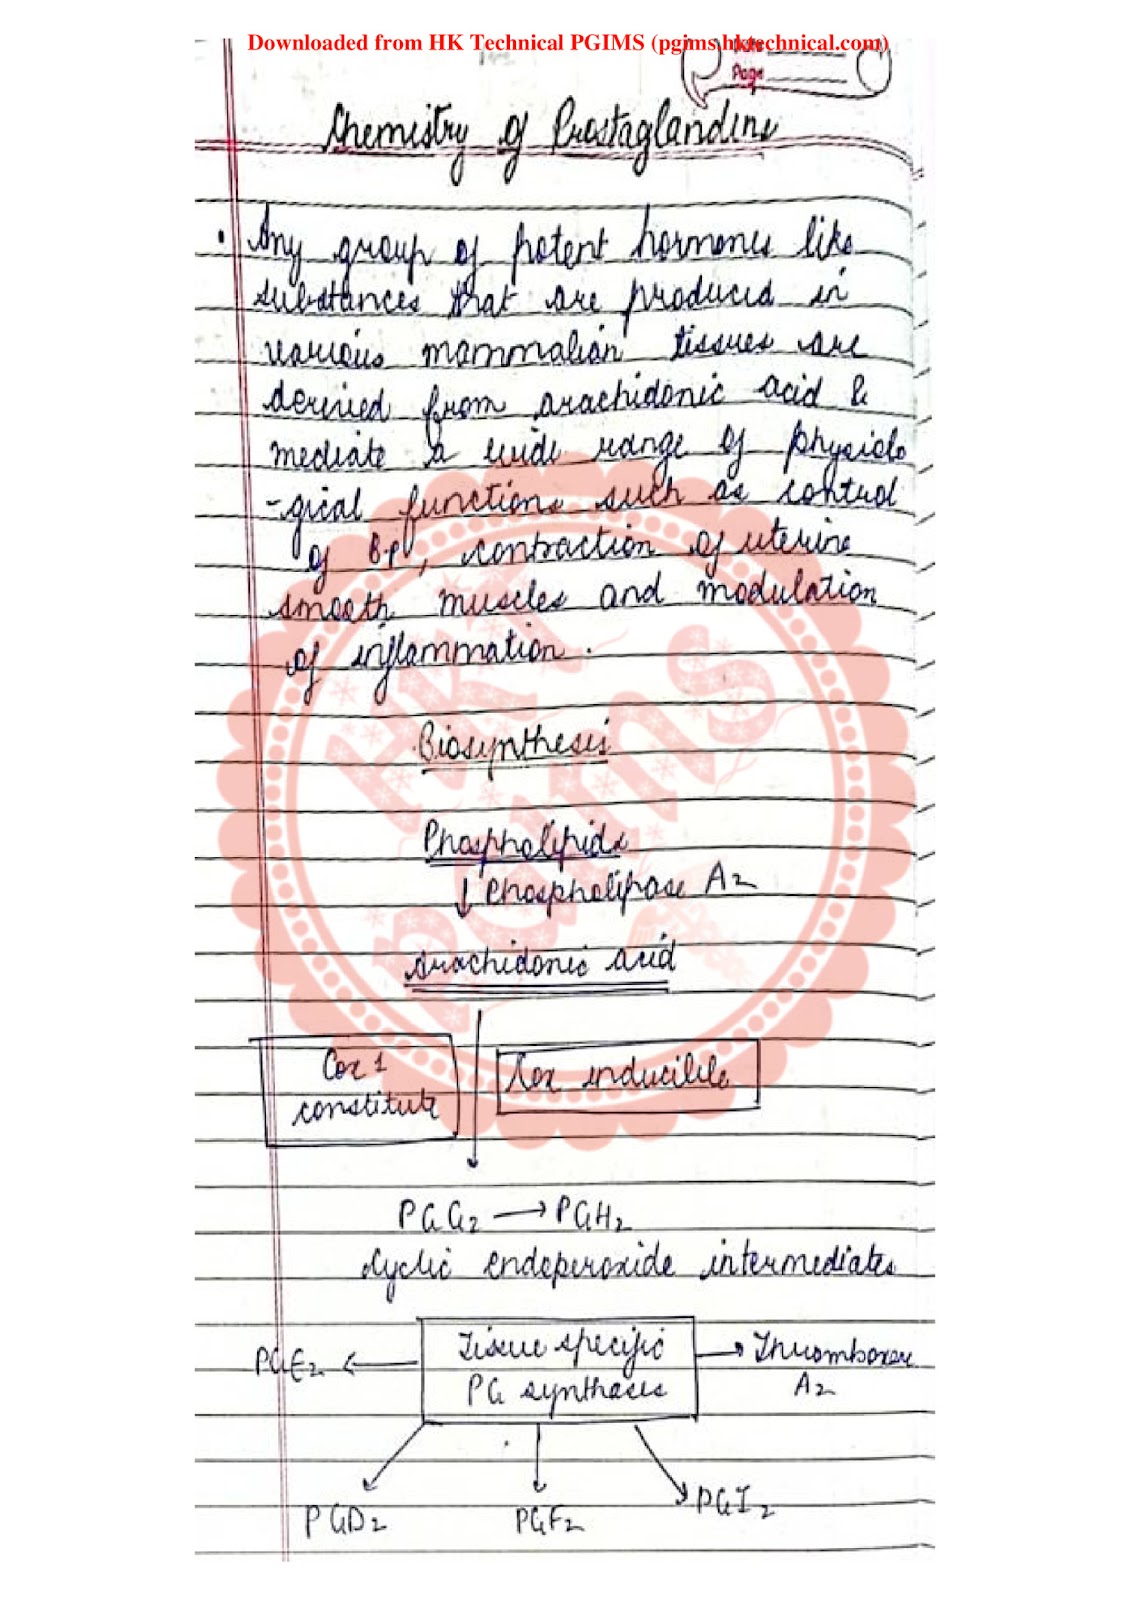 Downloaded from HK Technical PGIMS (pgims.hktechnical.com)
Date
Page
Chemistry of Prostaglandins
• Any group of potent hormones like
substances that are produced in
various mammalian tissues are
derived from arachidonic acid &
mediate a wide range of physiolo
-gical functions such as control
of BP, contraction of uterine
smooth muscles and modulation
of inflammation.
Biosynthesis
Phospholipids
↓ Phospholipase A2
Arachidonic acid
Cox 1
constitute
Cox inducible
PGG2 → PGH2
Cyclic endoperoxide intermediates
Tissue specific
PG synthases
PGE2
Thromboxane
A2
PGD2
PGF2
PGI2
HKT
PGIMS